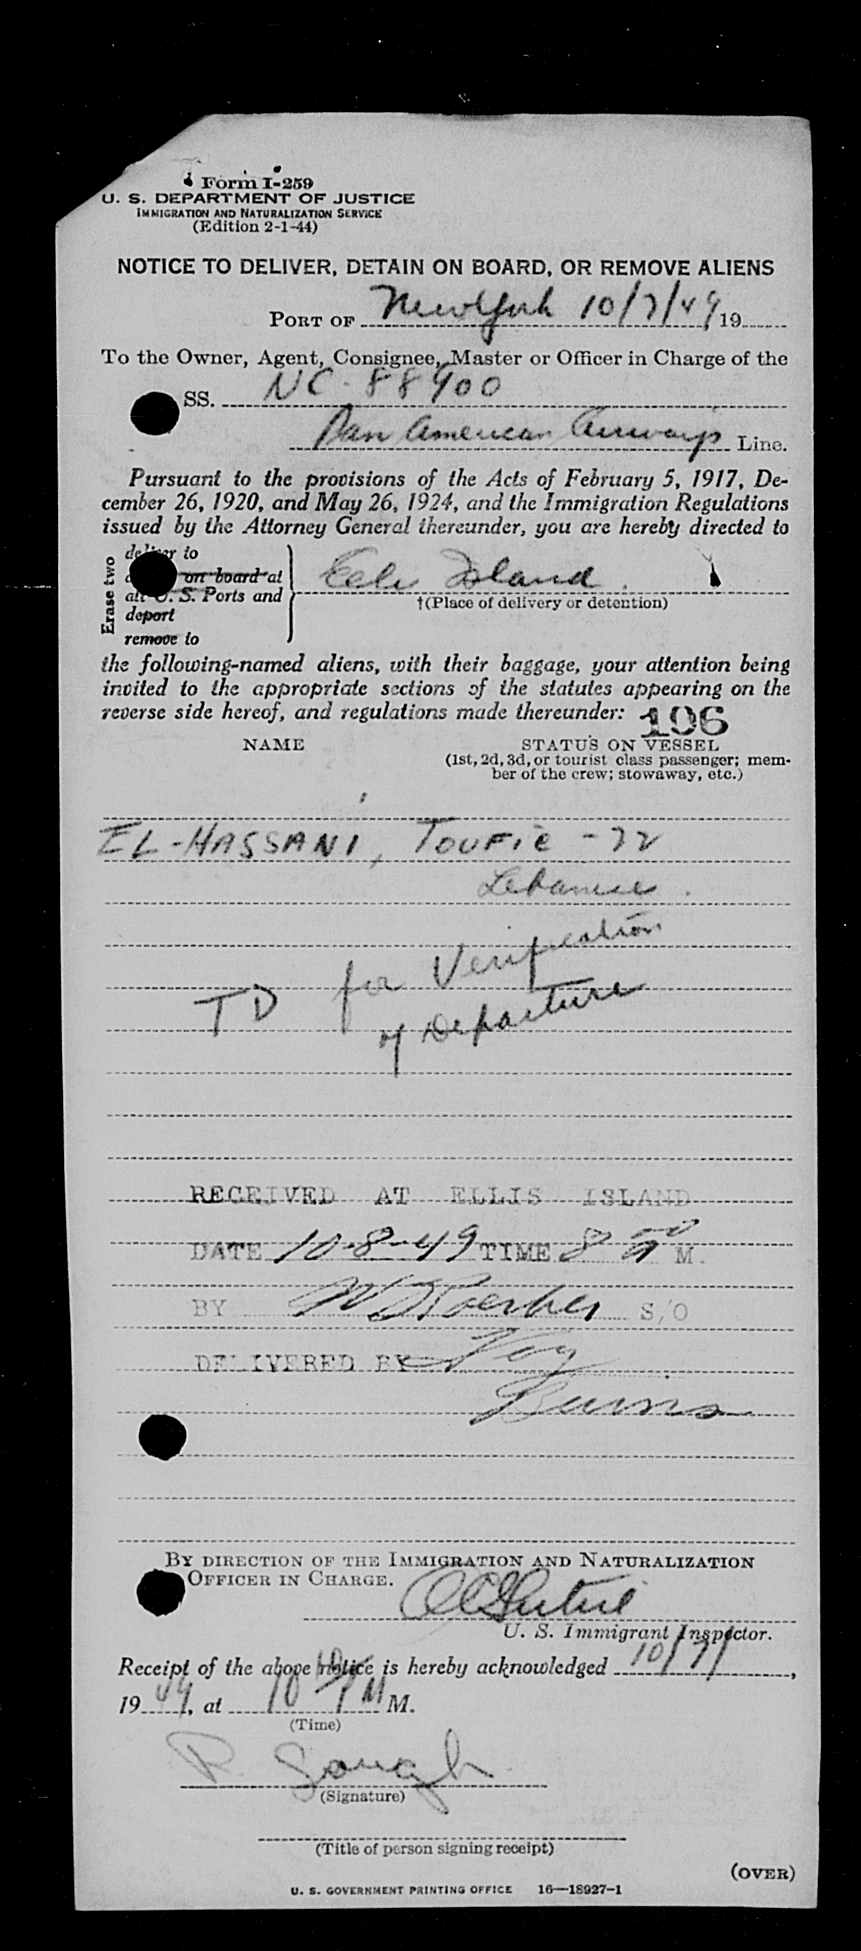 Form I-259
U. S. DEPARTMENT OF JUSTICE
IMMIGRATION AND NATURALIZATION SERVICE
(Edition 2-1-44)
NOTICE TO DELIVER, DETAIN ON BOARD, OR REMOVE ALIENS
PORT OF New York 10/7/49 19
To the Owner, Agent, Consignee, Master or Officer in Charge of the
SS. NC-88900
Pan American Airways Line.
Pursuant to the provisions of the Acts of February 5, 1917, De-
cember 26, 1920, and May 26, 1924, and the Immigration Regulations
issued by the Attorney General thereunder, you are hereby directed to
Erase two
deliver to
on board at
all U. S. Ports and
deport
remove to
Island
†(Place of delivery or detention)
the following-named aliens, with their baggage, your attention being
invited to the appropriate sections of the statutes appearing on the
reverse side hereof, and regulations made thereunder: 106
NAME STATUS ON VESSEL
(1st, 2d, 3d, or tourist class passenger; mem-
ber of the crew; stowaway, etc.)
EL-HASSANI, TOUFIC - 72
Lebanese
TD for Verification
of Departure
RECEIVED AT ELLIS ISLAND
DATE 10-8-49 TIME 8 M.
BY S/O
DELIVERED BY
Burns
BY DIRECTION OF THE IMMIGRATION AND NATURALIZATION
OFFICER IN CHARGE.
U. S. Immigrant Inspector.
Receipt of the above notice is hereby acknowledged 10/7/,
19 49, at 10 PM M.
(Time)
R. Gough
(Signature)
(Title of person signing receipt)
(OVER)
U. S. GOVERNMENT PRINTING OFFICE 16—18927-1